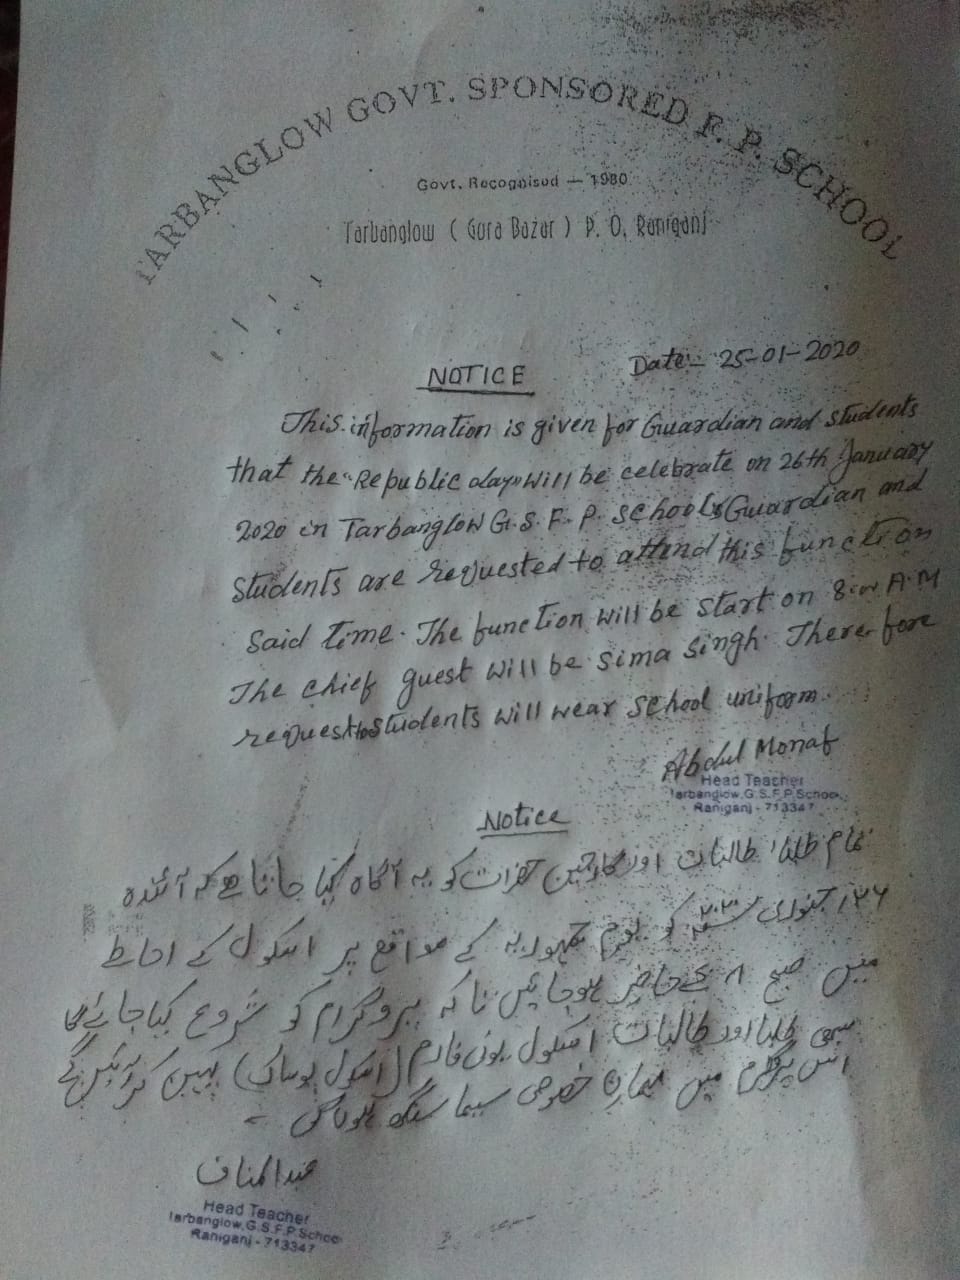 TARBANGLOW GOVT. SPONSORED F. P. SCHOOL
Govt. Recognised — 1980
Tarbanglow ( Gora Bazar ) P. O. Raniganj
NOTICE
Date:- 25-01-2020
This information is given for Guardian and students
that the "Republic day" will be celebrate on 26th January
2020 in Tarbanglow G.S.F.P. School, Guardian and
students are requested to attend this function
said time. The function will be start on 8.00 A.M
The chief guest will be Sima Singh. Therefore
request to students will wear school uniform.
Abdul Monaf
Head Teacher
Tarbanglow.G.S.F.P.School
Raniganj - 713347
Notice
تمام طلباء طالبات اور گارجین حضرات کو یہ آگاہ کیا جاتا ہے کہ آئندہ
۲۶؍ جنوری ۲۰۲۰ کو یوم جمہوریہ کے مواقع پر اسکول کے احاطے
میں صبح ۸ بجے حاضر ہوجائیں تاکہ پروگرام کو شروع کیا جائے گا
سبھی طلبا اور طالبات اسکول یونی فارم (اسکول پوساک) پہن کر آئیں گے
اس پروگرام میں مہمان خصوصی سیما سنگھ ہوں گی ۔
عبدالمناف
Head Teacher
Tarbanglow.G.S.F.P.School
Raniganj - 713347